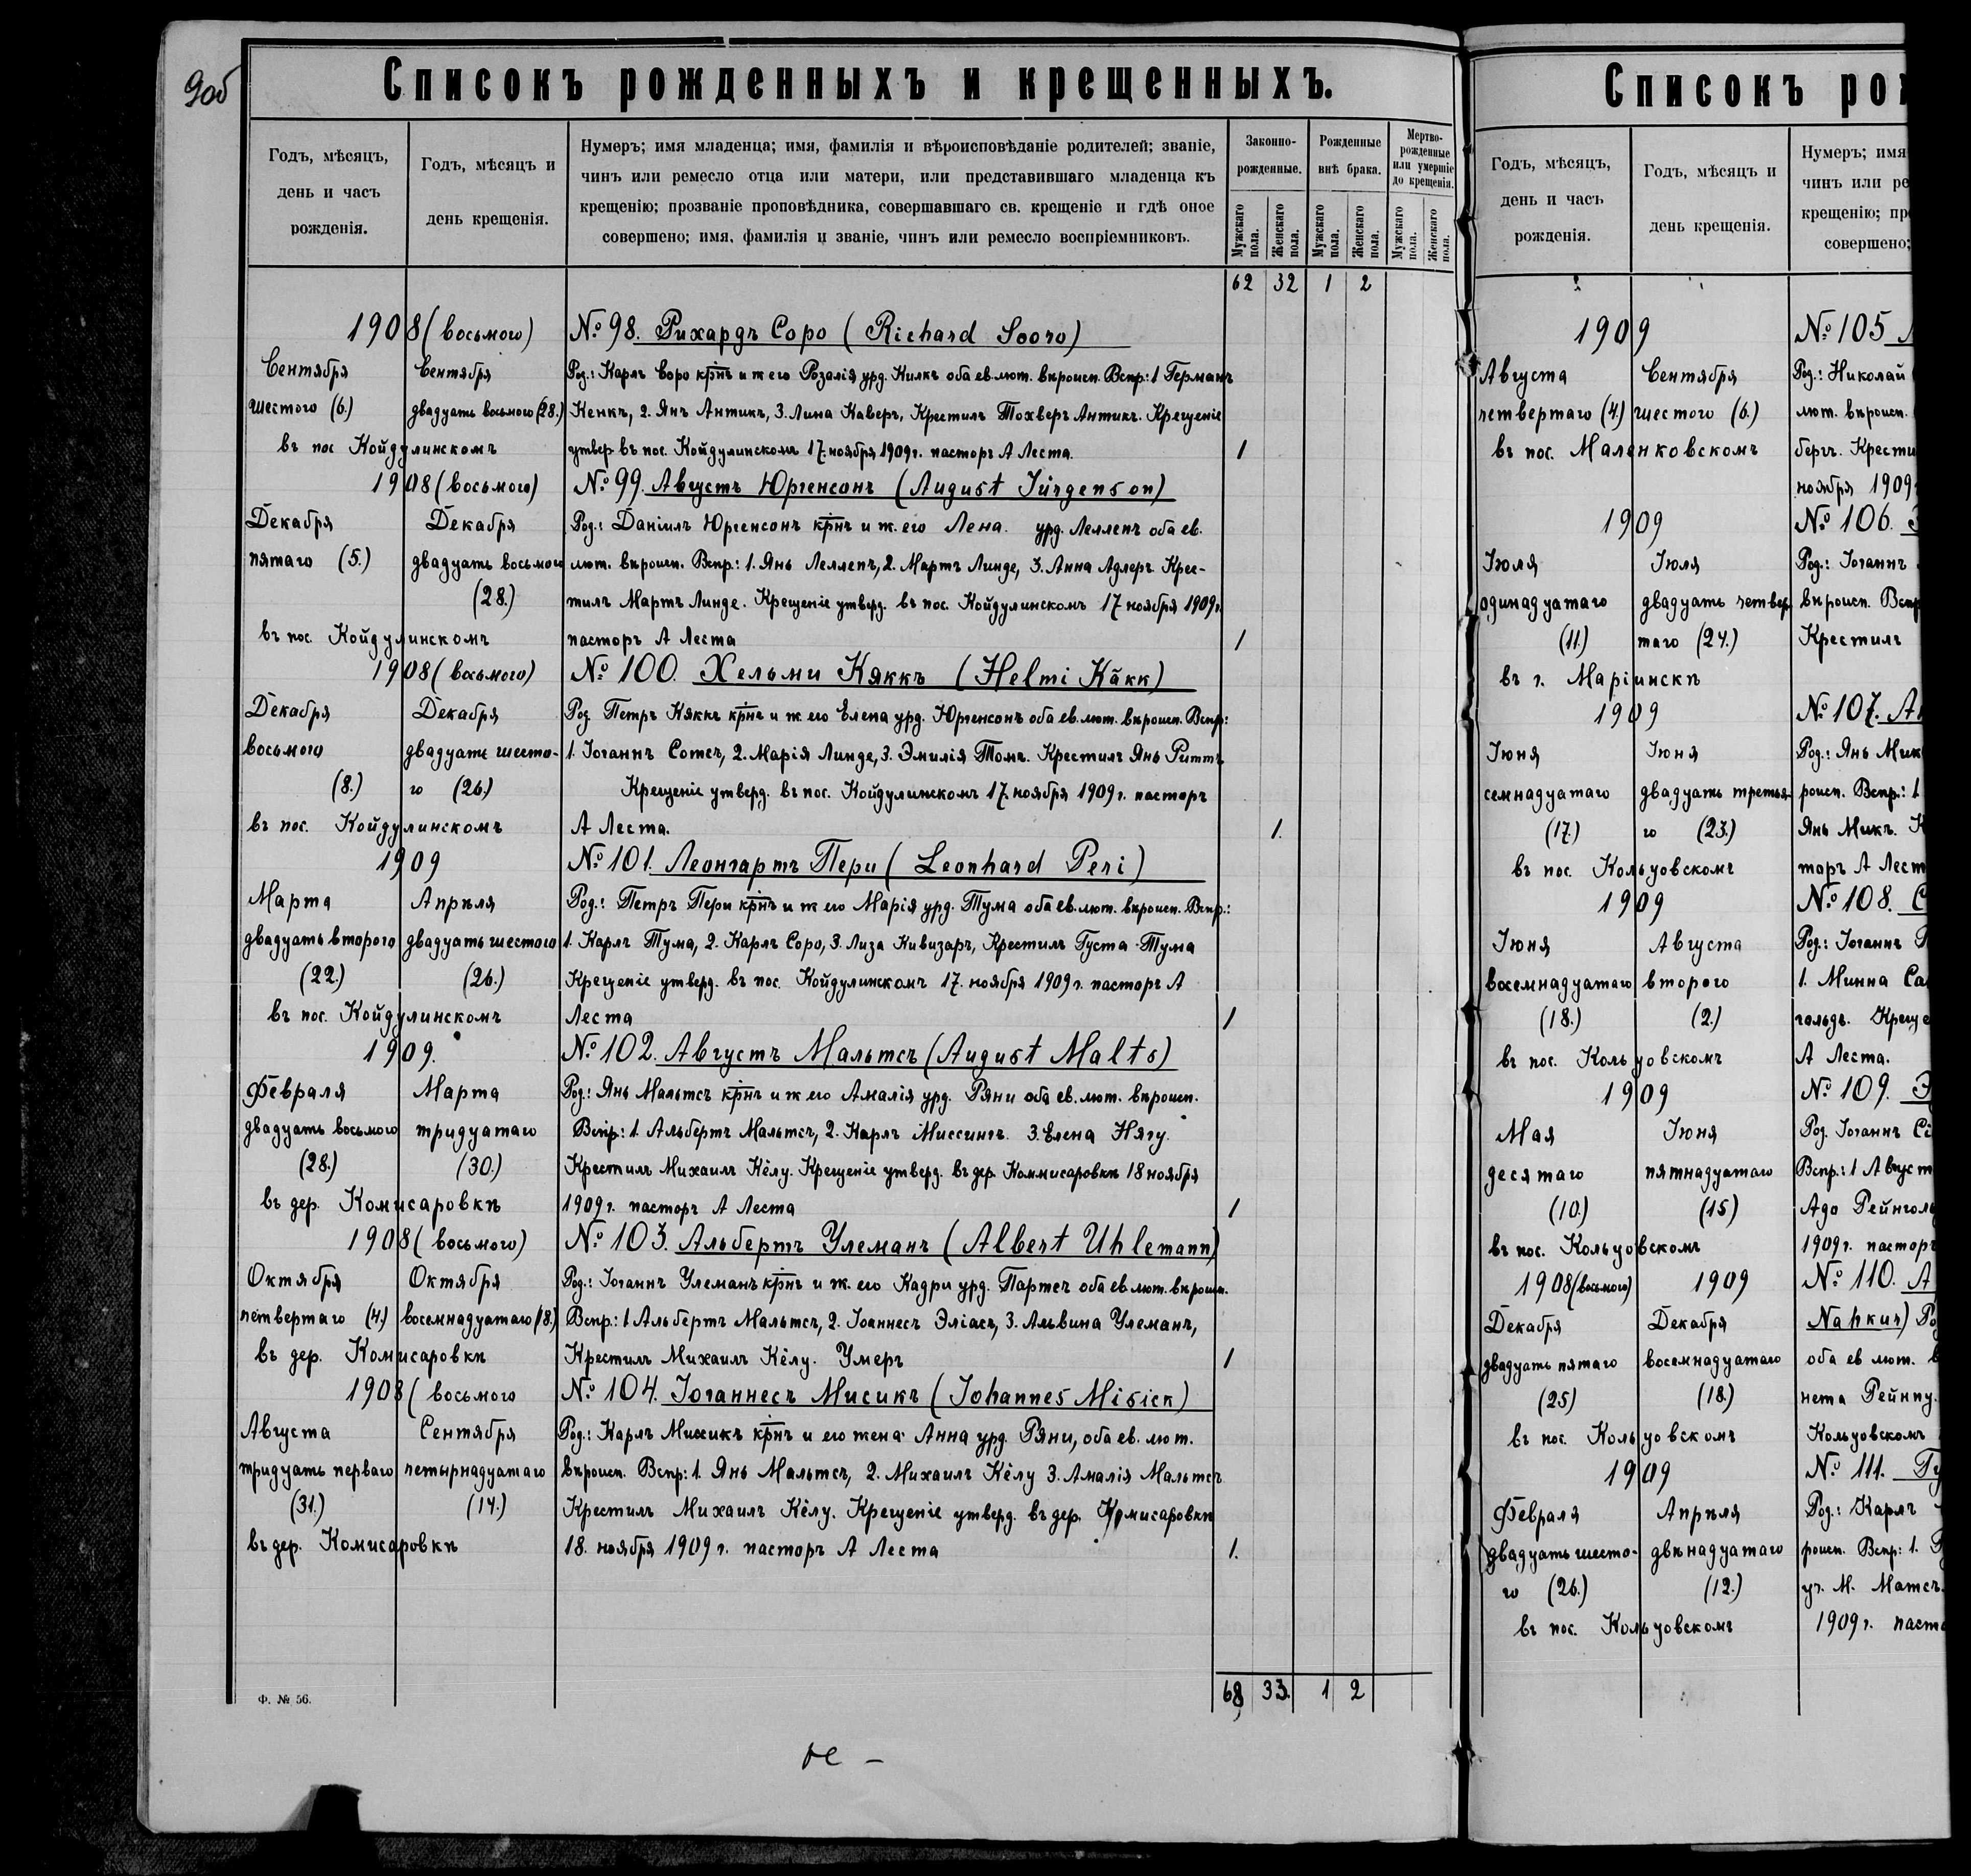 9об
Списокъ рожденныхъ и крещенныхъ.
Годъ, мѣсяцъ, день и часъ рожденія.
Годъ, мѣсяцъ и день крещенія.
Нумеръ; имя младенца; имя, фамилія и вѣроисповѣданіе родителей; званіе,
чинъ или ремесло отца или матери, или представившаго младенца къ
крещенію; прозваніе проповѣдника, совершавшаго св. крещеніе и гдѣ оное
совершено; имя, фамилія и званіе, чинъ или ремесло воспріемниковъ.
Законно-рожденные.
Рожденные внѣ брака.
Мертво-рожденные или умершіе до крещенія.
Мужскаго пола. Женскаго пола. Мужскаго пола. Женскаго пола. Мужскаго пола. Женскаго пола.
62 32 1 2
1908 (восьмого) № 98. Рихардъ Соро (Richard Sooro)
Сентября Сентября Род.: Карлъ Соро крнъ и ж его Розалія урд. Килкъ оба ев. лют. вѣроисп. Вспр: 1 Германъ
шестого (6.) двадцать восьмого (28.) Кенкъ, 2. Янъ Антикъ, 3. Лина Каверъ, Крестилъ Тохверъ Антикъ. Крещеніе
въ пос Койдулинскомъ утвер въ пос. Койдулинскомъ 17. ноября 1909 г. пасторъ А Леста. 1
1908 (восьмого) № 99. Августъ Юргенсонъ (August Jürgenson)
Декабря Декабря Род.: Даніилъ Юргенсонъ крнъ и ж. его Лена. урд. Леллепъ оба ев.
пятаго (5.) двадцать восьмого лют. вѣроисп. Вспр.: 1. Янь Леллепъ, 2. Мартъ Линде, 3. Анна Адлеръ Крес-
(28.) тилъ Мартъ Линде. Крещеніе утверд. въ пос. Койдулинскомъ 17 ноября 1909 г.
въ пос. Койдулинскомъ пасторъ А Леста 1
1908 (восьмого) № 100. Хельми Кяккъ (Helmi Käkk)
Декабря Декабря Род. Петръ Кяккъ крнъ и ж его Елена урд. Юргенсонъ оба ев. лют. вѣроисп. Вспр:
восьмого двадцать шесто- 1. Іоганнъ Сотсъ, 2. Марія Линде, 3. Эмилія Томъ. Крестилъ Янь Риттъ
(8.) го (26.) Крещеніе утверд. въ пос. Койдулинскомъ 17. ноября 1909 г. пасторъ
въ пос. Койдулинскомъ А Леста. 1.
1909 № 101. Леонгартъ Пери (Leonhard Peri)
Марта Апрѣля Род.: Петръ Пери крнъ и ж его Марія урд. Тума оба ев. лют. вѣроисп. Вспр.:
двадцать второго двадцать шестого 1. Карлъ Тума, 2. Карлъ Соро, 3. Лиза Кивизаръ, Крестилъ Густа Тума
(22.) (26.) Крещеніе утверд. въ пос. Койдулинскомъ 17. ноября 1909 г. пасторъ А
въ пос. Койдулинскомъ Леста 1
1909. № 102. Августъ Мальтсъ (August Malts)
Февраля Марта Род.: Янь Мальтсъ крнъ и ж его Амалія урд. Ряни оба ев. лют. вѣроисп.
двадцать восьмого тридцатаго Вспр: 1. Альбертъ Мальтсъ, 2. Карлъ Миссингъ. 3. Елена Нягу.
(28.) (30.) Крестилъ Михаилъ Кёлу. Крещеніе утверд. въ дер. Коммисаровкѣ 18 ноября
въ дер. Комисаровкѣ 1909 г. пасторъ А Леста 1
1908 (восьмого) № 103. Альбертъ Улеманъ (Albert Uhlemann)
Октября Октября Род.: Іоганнъ Улеманъ крнъ и ж. его Кадри урд. Партсъ оба ев. лют. вѣроисп.
четвертаго (4.) восемнадцатаго (18.) Вспр: 1 Альбертъ Мальтсъ, 2. Іоаннесъ Эліасъ, 3. Альвина Улеманъ,
въ дер. Комисаровкѣ Крестилъ Михаилъ Кёлу. Умеръ 1
1908 (восьмого № 104. Іоганнесъ Мисикъ (Johannes Misick)
Августа Сентября Род.: Карлъ Мисикъ крнъ и его жена Анна урд. Ряни, оба ев. лют.
тридцать перваго четырнадцатаго вѣроисп. Вспр: 1. Янь Мальтсъ, 2. Михаилъ Кёлу 3. Амалія Мальтсъ
(31.) (14.) Крестилъ Михаилъ Кёлу. Крещеніе утверд. въ дер. Комисаровкѣ
въ дер. Комисаровкѣ 18. ноября 1909 г. пасторъ А Леста 1.
68 33. 1 2
Ф. № 56.
Списокъ рож
Годъ, мѣсяцъ, день и часъ рожденія.
Годъ, мѣсяцъ и день крещенія.
Нумеръ; имя
чинъ или ре
крещенію; пр
совершено;
1909 № 105
Августа Сентября Род.: Николай
четвертаго (4.) шестого (6.) лют. вѣроисп.
въ пос. Маленковскомъ бергъ. Крести
ноября 1909
1909 № 106.
Іюля Іюля Род.: Іоганнъ
одинадцатаго двадцать четвер- вѣроисп. Вспр
(11.) таго (24.) Крестилъ
въ г. Маріинскѣ
1909 № 107. Ан
Іюня Іюня Род.: Янь Мик
семнадцатаго двадцать третья- роисп. Вспр.: 1.
(17.) го (23.) Янь Микъ. К
въ пос. Кольцовскомъ торъ А Лест
1909 № 108. С
Іюня Августа Род.: Іоганнъ Р
восемнадцатаго второго 1. Минна Са
(18.) (2.) гольдъ. Креще
въ пос. Кольцовскомъ А Леста.
1909 № 109. Э
Мая Іюня Род. Іоганнъ Сі
десятаго пятнадцатаго Вспр.: 1 Август
(10.) (15) Адо Рейнголь
въ пос. Кольцовскомъ 1909 г. пасторъ
1908 (восьмого) 1909 № 110. А
Декабря Декабря Nahkur) Ро
двадцать пятаго восемнадцатаго оба ев лют. в
(25) (18.) нета Рейнпу.
въ пос. Кольцовскомъ Кольцовскомъ
1909 № 111. Гу
Февраля Апрѣля Род.: Карлъ
двадцать шесто- двѣнадцатаго роисп. Вспр: 1.
го (26.) (12.) уч. М. Матсъ.
въ пос. Кольцовскомъ 1909 г. паст